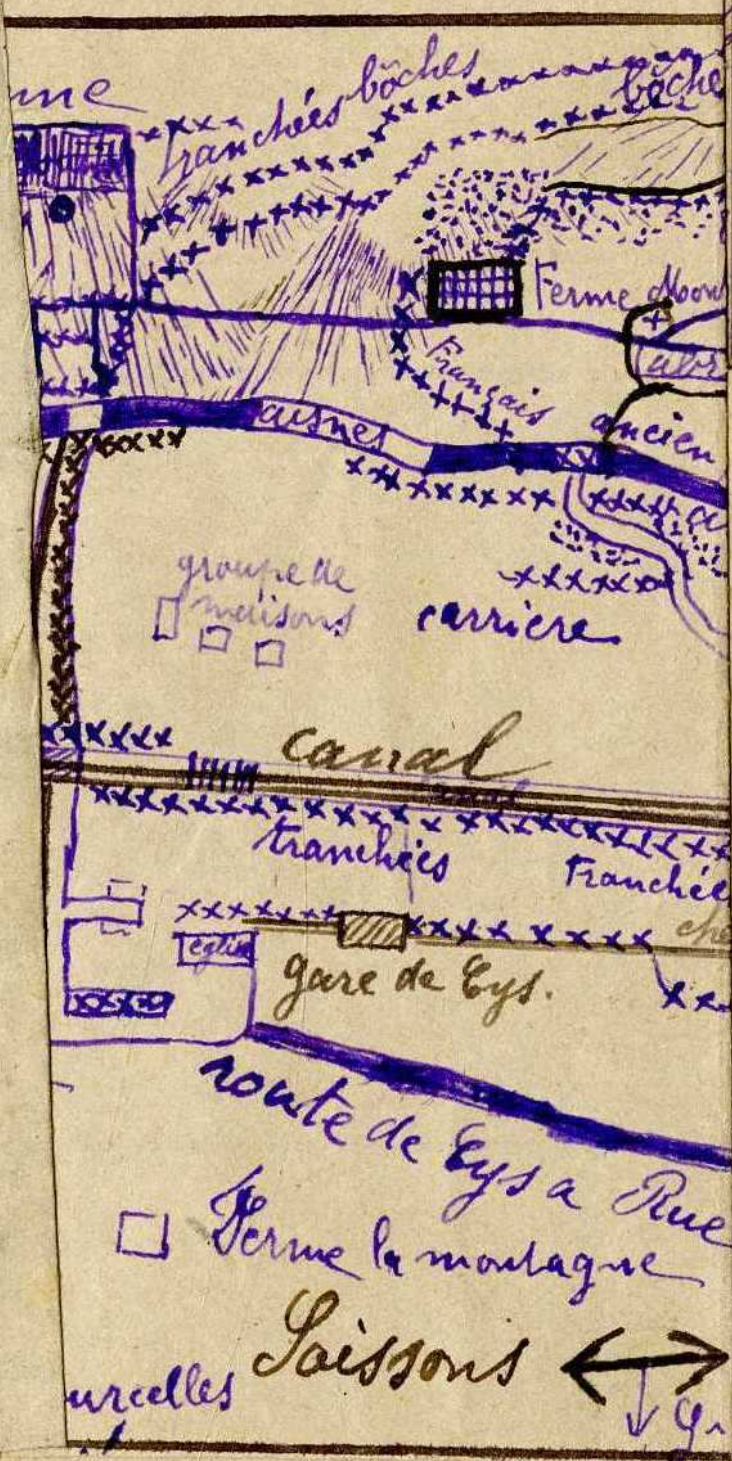 me
tranchées bôches
bôche
Ferme Mon
abr
Français
aisnes
ancien
groupe de
maisons
carriere
canal
tranchées
Tranchée
che
eglise
gare de Eys.
route de Eys a Rue
Ferme la montagne
Soissons
urcelles